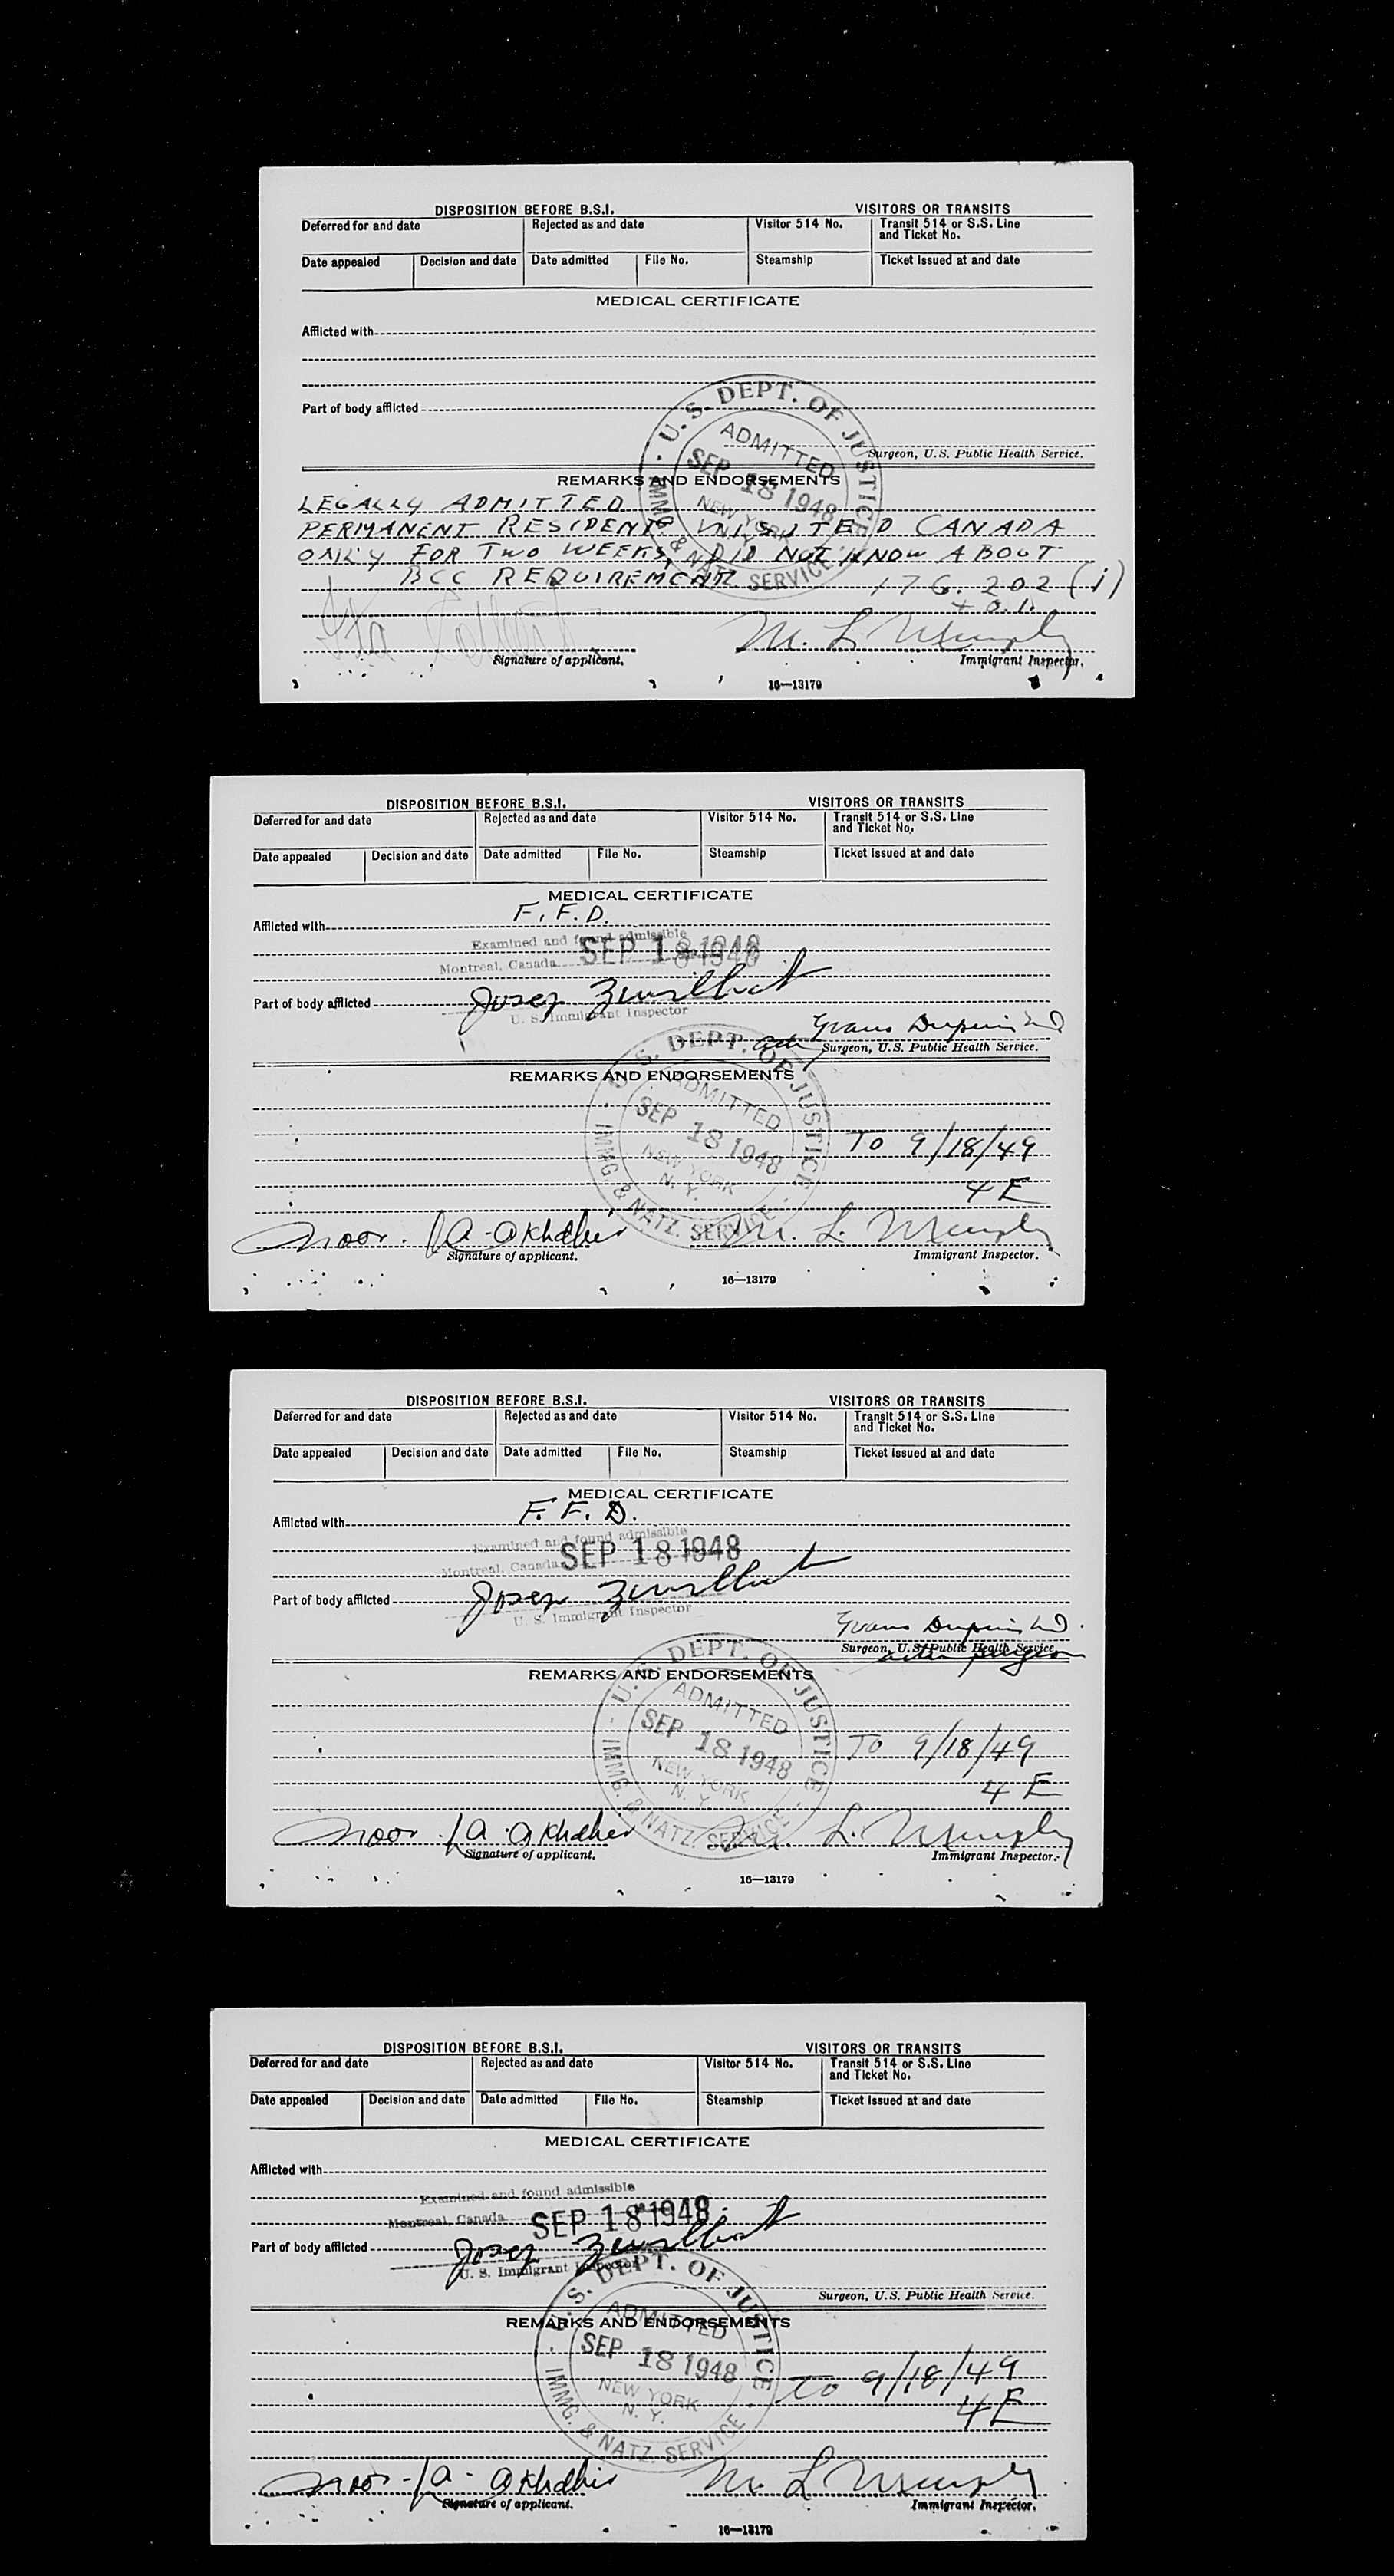 DISPOSITION BEFORE B.S.I. VISITORS OR TRANSITS
Deferred for and date Rejected as and date Visitor 514 No. Transit 514 or S.S. Line
and Ticket No.
Date appealed Decision and date Date admitted File No. Steamship Ticket issued at and date
MEDICAL CERTIFICATE
Afflicted with
Part of body afflicted
Surgeon, U.S. Public Health Service.
REMARKS AND ENDORSEMENTS
U.S. DEPT. OF JUSTICE
ADMITTED
SEP 18 1948
NEW YORK
N. Y.
IMMG. & NATZ. SERVICE
LEGALLY ADMITTED
PERMANENT RESIDENT, VISITED CANADA
ONLY FOR TWO WEEKS, DID NOT KNOW ABOUT
BCC REQUIREMENT 176.202 (i)
M. L. Murphy
Signature of applicant. Immigrant Inspector.
16—13179
DISPOSITION BEFORE B.S.I. VISITORS OR TRANSITS
Deferred for and date Rejected as and date Visitor 514 No. Transit 514 or S.S. Line
and Ticket No.
Date appealed Decision and date Date admitted File No. Steamship Ticket issued at and date
MEDICAL CERTIFICATE
Afflicted with F.F.D.
Examined and found admissible
Montreal, Canada SEP 18 1948
Part of body afflicted Josep
U. S. Immigrant Inspector
Surgeon, U.S. Public Health Service.
REMARKS AND ENDORSEMENTS
U.S. DEPT. OF JUSTICE
ADMITTED
SEP 18 1948
NEW YORK
N. Y.
IMMG. & NATZ. SERVICE
TO 9/18/49
4E
Noor. A. Akhdhir M. L. Murphy
Signature of applicant. Immigrant Inspector.
16—13179
DISPOSITION BEFORE B.S.I. VISITORS OR TRANSITS
Deferred for and date Rejected as and date Visitor 514 No. Transit 514 or S.S. Line
and Ticket No.
Date appealed Decision and date Date admitted File No. Steamship Ticket issued at and date
MEDICAL CERTIFICATE
Afflicted with F.F.D.
Examined and found admissible
Montreal, Canada SEP 18 1948
Part of body afflicted Josep
U. S. Immigrant Inspector
Surgeon, U.S. Public Health Service.
REMARKS AND ENDORSEMENTS
U.S. DEPT. OF JUSTICE
ADMITTED
SEP 18 1948
NEW YORK
N. Y.
IMMG. & NATZ. SERVICE
TO 9/18/49
4E
Noor. A. Akhdhir M. L. Murphy
Signature of applicant. Immigrant Inspector.
16—13179
DISPOSITION BEFORE B.S.I. VISITORS OR TRANSITS
Deferred for and date Rejected as and date Visitor 514 No. Transit 514 or S.S. Line
and Ticket No.
Date appealed Decision and date Date admitted File No. Steamship Ticket issued at and date
MEDICAL CERTIFICATE
Afflicted with
Examined and found admissible
Montreal, Canada SEP 18 1948
Part of body afflicted Josep
U. S. Immigrant Inspector
Surgeon, U.S. Public Health Service.
REMARKS AND ENDORSEMENTS
U.S. DEPT. OF JUSTICE
ADMITTED
SEP 18 1948
NEW YORK
N. Y.
IMMG. & NATZ. SERVICE
To 9/18/49
4E
Noor. A. Akhdhir M. L. Murphy
Signature of applicant. Immigrant Inspector.
16—13179